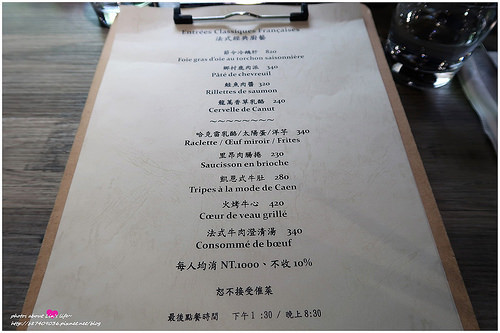 Entrées Classiques Françaises
法式經典廚藝
節令冷鵝肝 820
Foie gras d'oie au torchon saisonnière
鄉村鹿肉派 340
Pâté de chevreuil
鮭魚肉醬 320
Rillettes de saumon
龍蒿香草乳酪 240
Cervelle de Canut
~~~~~~~~
哈克雷乳酪/太陽蛋/洋芋 340
Raclette / Œuf miroir / Frites
里昂肉腸捲 230
Saucisson en brioche
凱恩式牛肚 280
Tripes à la mode de Caen
火烤牛心 420
Cœur de veau grillé
法式牛肉澄清湯 340
Consommé de bœuf
每人均消 NT.1000、不收 10%
恕不接受催菜
最後點餐時間 下午1:30 / 晚上8:30
photos about Lin's life~